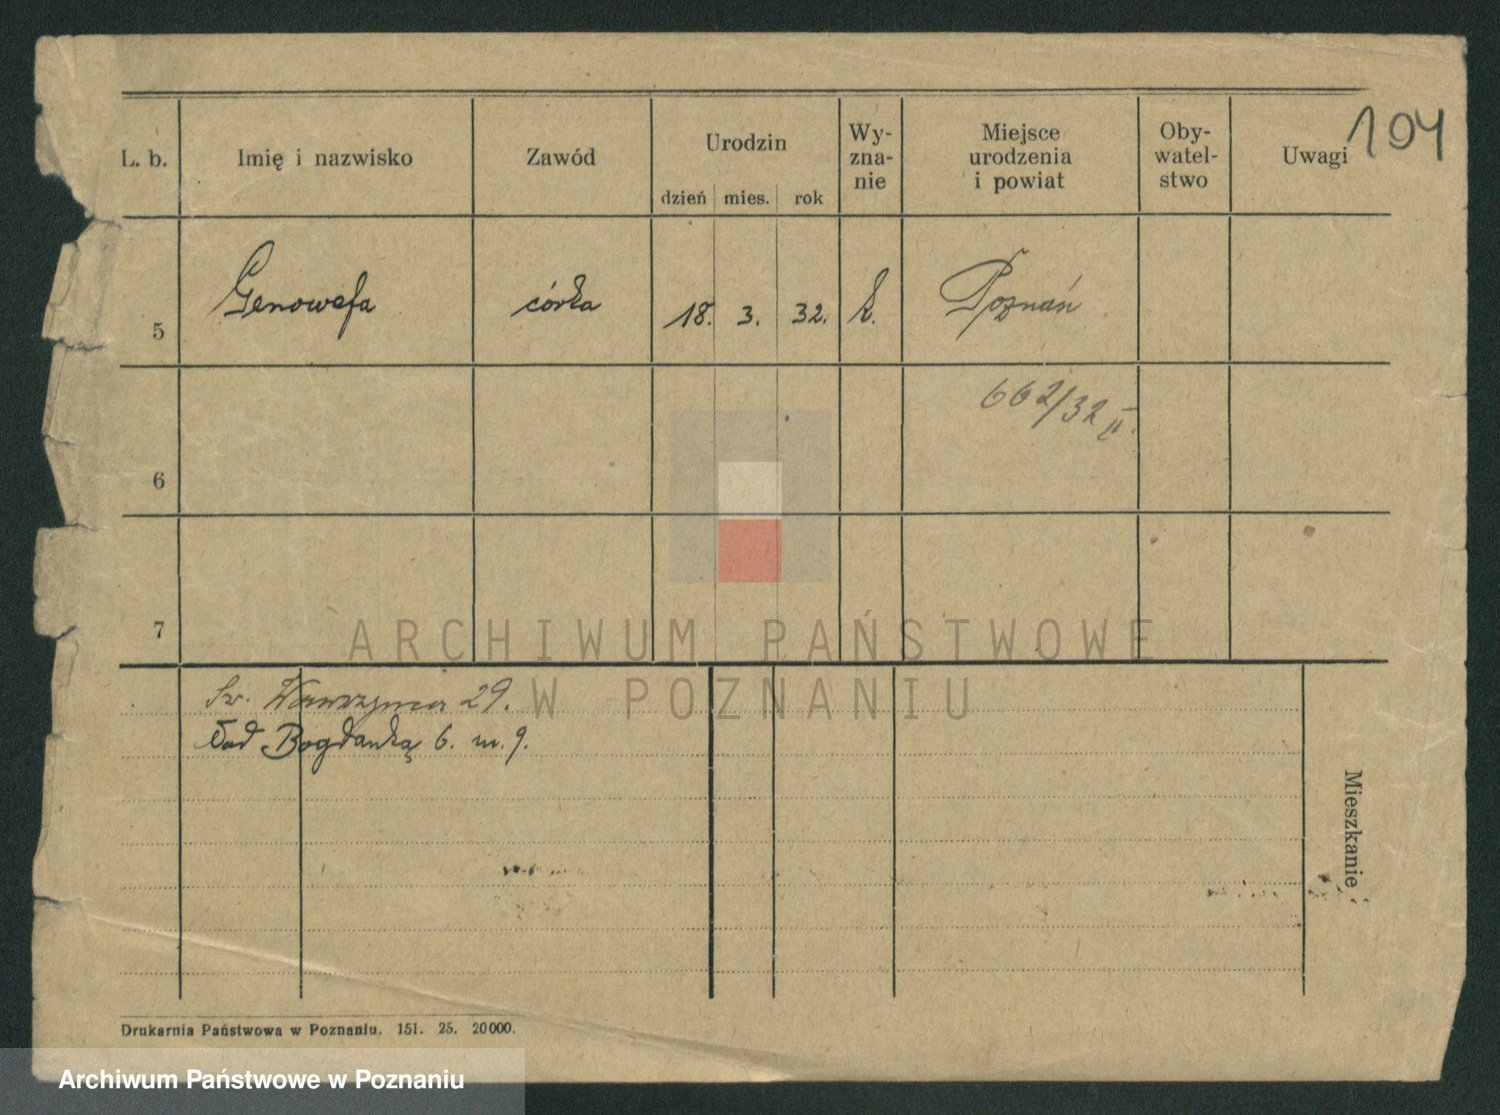 104
L. b. Imię i nazwisko Zawód Urodzin dzień mies. rok Wy-zna-nie Miejsce urodzenia i powiat Oby-watel-stwo Uwagi
5 Genowefa córka 18. 3. 32. k. Poznań
662/32 II.
6
7
ARCHIWUM PAŃSTWOWE
W POZNANIU
Św. Wawrzyńca 29.
Nad Bogdanką 6. m. 9.
Mieszkanie
Drukarnia Państwowa w Poznaniu. 151. 25. 20000.
Archiwum Państwowe w Poznaniu